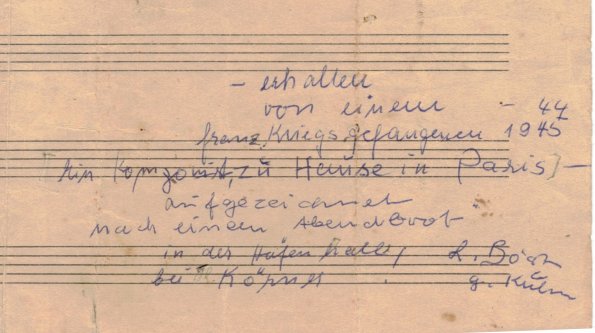 - erhalten
von einem - 44
franz. Kriegsgefangenen 1945
[Ein Komponist, zu Hause in Paris] -
aufgezeichnet
nach einem Abendbrot
in der Hafenhalle,
bei